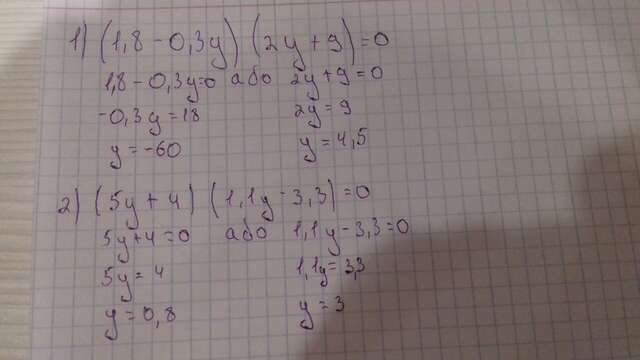 1) (1,8 - 0,3y) (2y + 9) = 0
1,8 - 0,3y=0 або 2y + 9 = 0
-0,3y = 18 2y = 9
y = -60 y = 4,5
2) (5y + 4) (1,1y - 3,3) = 0
5y+4 = 0 або 1,1y - 3,3 = 0
5y = 4 1,1y = 3,3
y = 0,8 y = 3